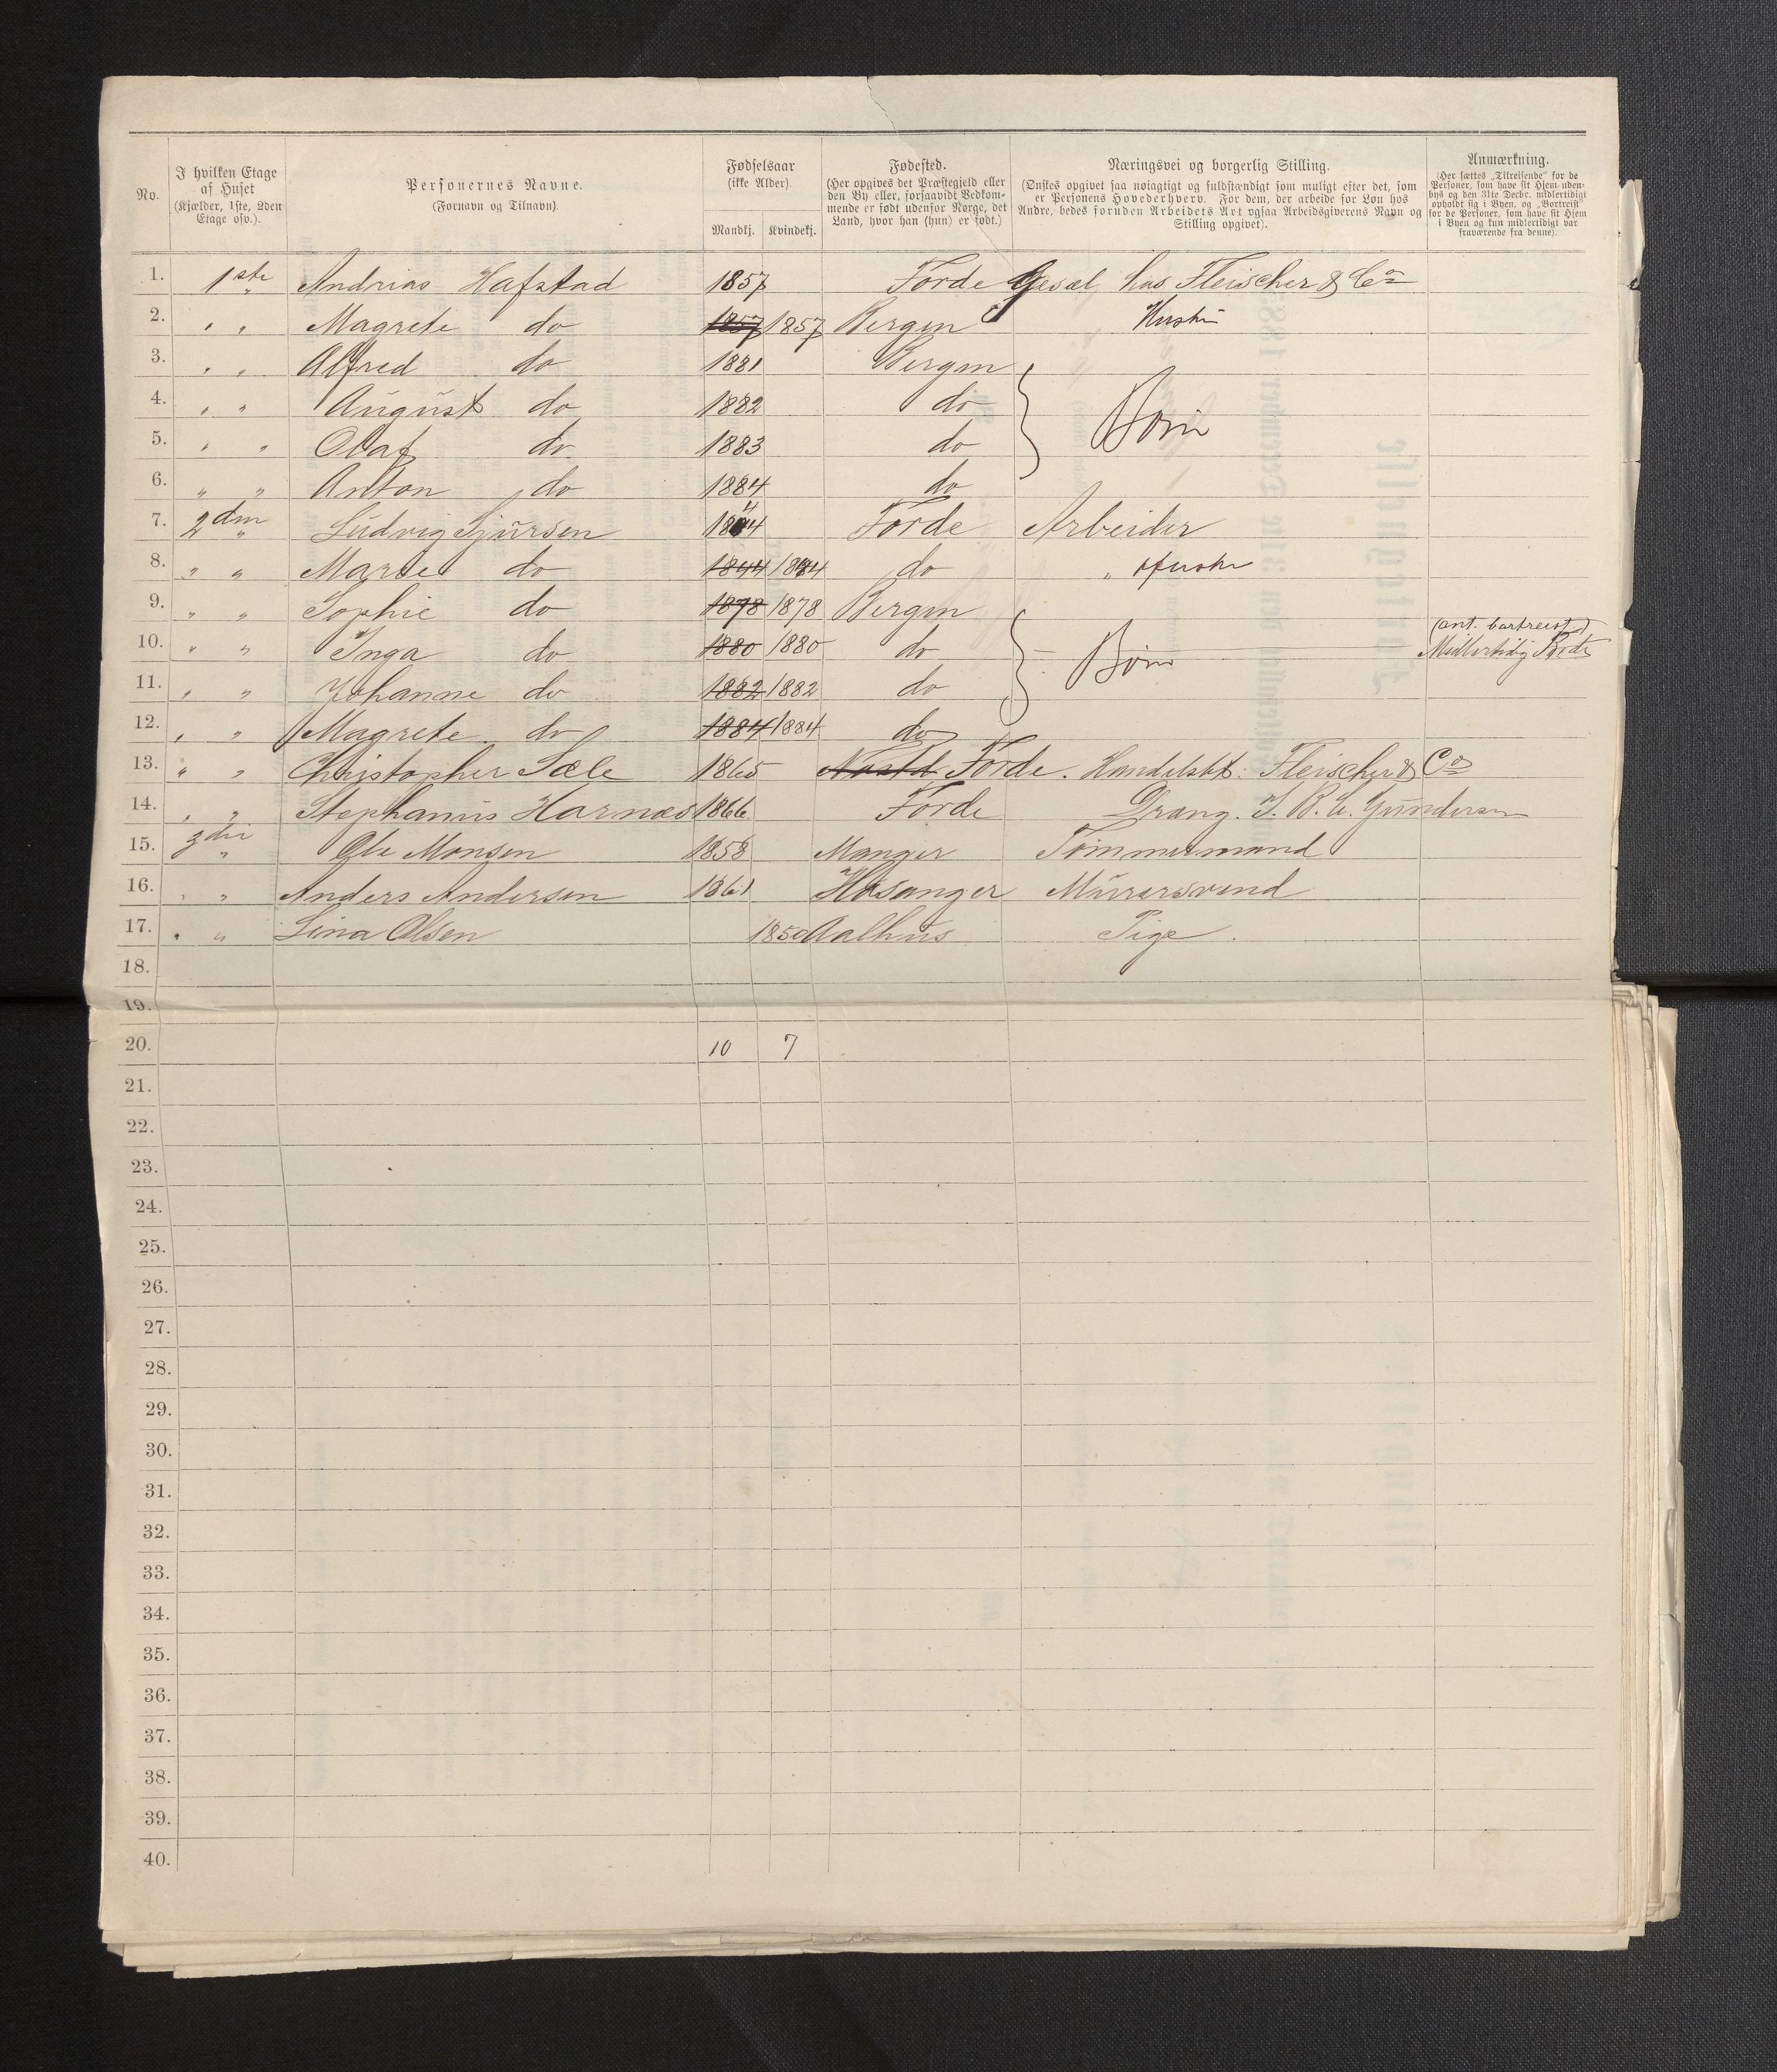 No.
I hvilken Etage
af Huset
(Kjælder, 1ste, 2den
Etage osv.).
Personernes Navne.
(Fornavn og Tilnavn).
Fødselsaar
(ikke Alder).
Mandkj. Kvindekj.
Fødested.
(Her opgives det Præstegjeld eller
den By eller, forsaavidt Vedkom-
mende er født udenfor Norge, det
Land, hvor han (hun) er født.)
Næringsvei og borgerlig Stilling.
(Ønskes opgivet saa nøiagtigt og fuldstændigt som muligt efter det, som
er Personens Hovederhverv. For dem, der arbeide for Løn hos
Andre, bedes foruden Arbeidets Art ogsaa Arbeidsgiverens Navn og
Stilling opgivet).
Anmærkning.
(Her sættes „Tilreisende" for de
Personer, som have sit Hjem uden-
bys og den 31te Decbr. midlertidigt
opholdt sig i Byen, og „Bortreist"
for de Personer, som have sit Hjem
i Byen og kun midlertidigt var
fraværende fra denne).
1. 1ste " Andrias Hafstad 1857 Førde Gesæl hos Fleischer & Co
2. " " Magrete do 1857 1857 Bergen Hustru
3. " " Alfred do 1881 Bergen
4. " " August do 1882 do Børn
5. " " Olaf do 1883 do
6. " " Anton do 1884 do
7. 2den " Ludvig Sjursen 1844 Førde Arbeider
8. " " Marie do 1844 1844 do " Hustru
9. " " Sophie do 1878 1878 Bergen
(ant. bortreist)
10. " " Inga do 1880 1880 do Børn Midlertidig
11. " " Johanne do 1882 1882 do
12. " " Magrete do 1884 1884 do
13. " " Christopher Sæle 1865 Førde. Handelsbt: Fleischer & Co
14. " " Stephanus Harnæs 1866 Førde Dreng. Gundersen
15. 3die " Ole Monsen 1858 Manger Tømmermand
16. " " Anders Andersen 1861 Hosanger Murersvend
17. " " Lina Olsen 1850 Aalhus Pige.
18.
19.
20. 10 7
21.
22.
23.
24.
25.
26.
27.
28.
29.
30.
31.
32.
33.
34.
35.
36.
37.
38.
39.
40.